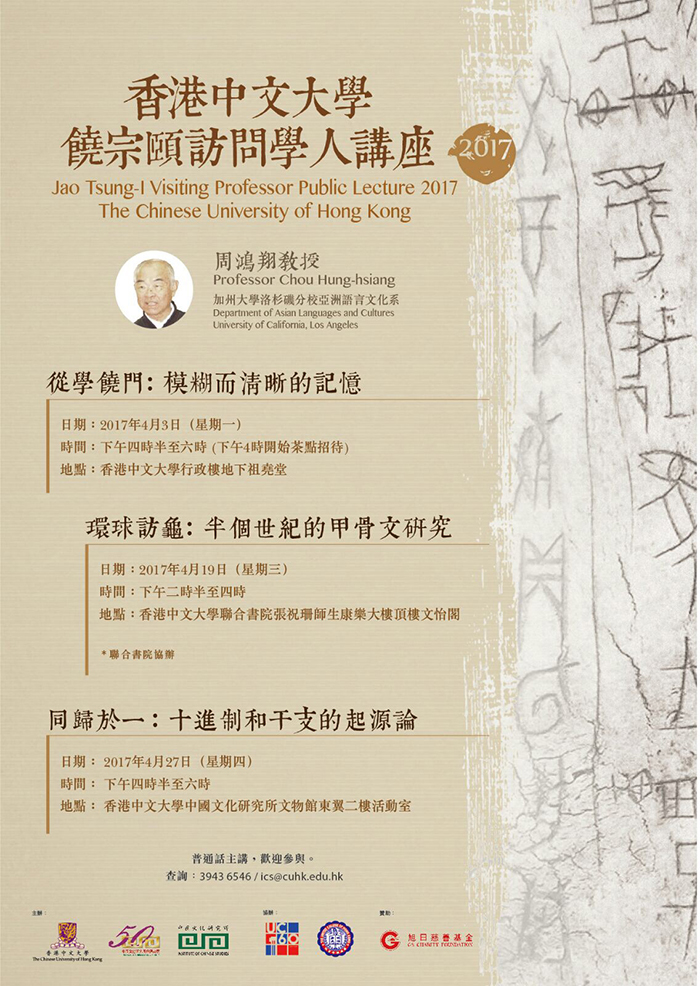 香港中文大學
饒宗頤訪問學人講座 2017
Jao Tsung-I Visiting Professor Public Lecture 2017
The Chinese University of Hong Kong
周鴻翔教授
Professor Chou Hung-hsiang
加州大學洛杉磯分校亞洲語言文化系
Department of Asian Languages and Cultures
University of California, Los Angeles
從學饒門：模糊而清晰的記憶
日期：2017年4月3日（星期一）
時間：下午四時半至六時 (下午4時開始茶點招待)
地點：香港中文大學行政樓地下祖堯堂
環球訪龜：半個世紀的甲骨文研究
日期：2017年4月19日（星期三）
時間：下午二時半至四時
地點：香港中文大學聯合書院張祝珊師生康樂大樓頂樓文怡閣
*聯合書院協辦
同歸於一：十進制和干支的起源論
日期： 2017年4月27日（星期四）
時間： 下午四時半至六時
地點： 香港中文大學中國文化研究所文物館東翼二樓活動室
普通話主講，歡迎參與。
查詢：3943 6546 / ics@cuhk.edu.hk
主辦：
協辦：
贊助：
香港中文大學
The Chinese University of Hong Kong
50
中國文化研究所
INSTITUTE OF CHINESE STUDIES
UC
60
旭日慈善基金
GS CHARITY FOUNDATION